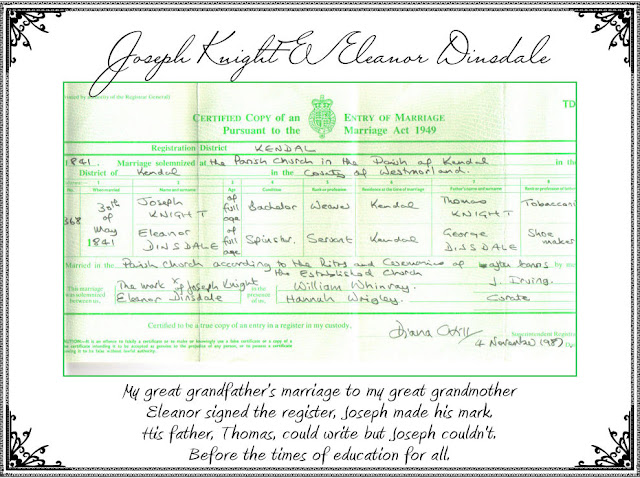 Joseph Knight & Eleanor Dinsdale
of the Registrar General)
TD
CERTIFIED COPY OF AN ENTRY OF MARRIAGE
Pursuant to the Marriage Act 1949
Registration District KENDAL
1841. Marriage solemnized at the Parish Church in the Parish of Kendal in the
District of Kendal in the County of Westmorland.
No. When married Name and surname Age Condition Rank or profession Residence at the time of marriage Father's name and surname Rank or profession
368 30th of May 1841 Joseph KNIGHT of full age Bachelor Weaver Kendal Thomas KNIGHT Tobacconi
Eleanor DINSDALE of full age Spinster. Servant Kendal George DISSDALE Shoe maker
Married in the Parish Church according to the Rites and Ceremonies of the Established Church after banns by me
This marriage was solemnized between us, The mark X of Joseph Knight in the presence of us, William Whinray. J. Irving.
Eleanor Dinsdale Hannah Wrigley. Curate
Certified to be a true copy of an entry in a register in my custody,
Superintendent Registrar
4 November 1987
CAUTION:—It is an offence to falsify a certificate or to make or knowingly use a false certificate or a copy of a
false certificate intending it to be accepted as genuine to the prejudice of any person, or to possess a certificate
knowing it to be false without lawful authority.
My great grandfather's marriage to my great grandmother
Eleanor signed the register, Joseph made his mark.
His father, Thomas, could write but Joseph couldn't.
Before the times of education for all.